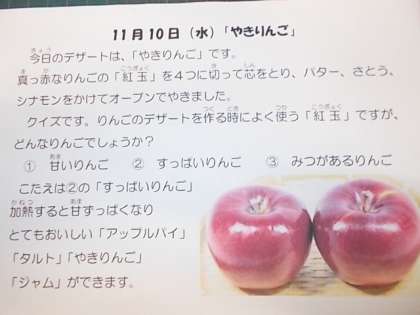 11月10日（水）「やきりんご」
今日のデザートは、「やきりんご」です。
真っ赤なりんごの「紅玉」を４つに切って芯をとり、バター、さとう、
シナモンをかけてオーブンでやきました。
クイズです。りんごのデザートを作る時によく使う「紅玉」ですが、
どんなりんごでしょうか？
① 甘いりんご　② すっぱいりんご　③ みつがあるりんご
こたえは②の「すっぱいりんご」
加熱すると甘ずっぱくなり
とてもおいしい「アップルパイ」
「タルト」「やきりんご」
「ジャム」ができます。